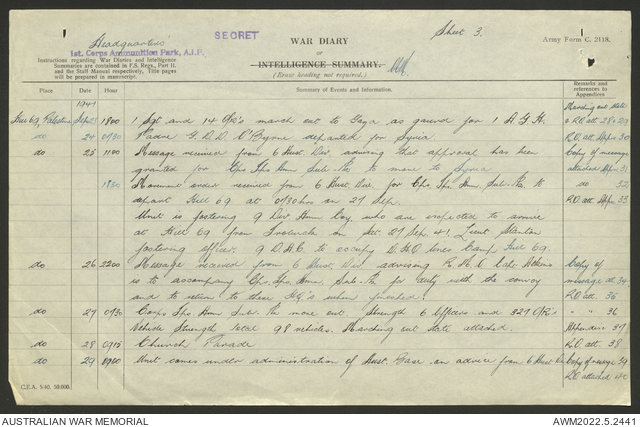 Sheet 3.
SECRET
Headquarters
1st. Corps Ammunition Park, A.I.F.
WAR DIARY
OF
INTELLIGENCE SUMMARY.
(Erase heading not required.)
Army Form C. 2118.
Instructions regarding War Diaries and Intelligence
Summaries are contained in F.S. Regs., Part II.
and the Staff Manual respectively. Title pages
will be prepared in manuscript.
Place Date Hour Summary of Events and Information. Remarks and references to Appendices
1941 Marching out state
Hill 69, Palestine Sept 23 1800 1 Sgt and 14 O/R's march out to Gaza as guard for 1 A.G.H. & R.O. att. 28 & 29
do 24 0730 Padre G.D.D. O'Byrne departed for Syria R.O. att. Appx 30
do 25 1100 Message received from 6 Aust. Div. advising that approval has been Copy of message
granted for Cps. Tps. Amn. Sub-Pk. to move to Syria attached Appx 31
1830 Movement order received from 6 Aust. Div. for Cps. Tps. Amn. Sub. Pk. to do 32
depart Hill 69 at 0730 hrs on 27 Sep. R.O. att. Appx. 33
Unit is fostering 9 Div Amn Coy. who are expected to arrive
at Hill 69 from on Sat. 27 Sep. 41. Lieut Stanton
fostering officer. 9 D.H.C. to occupy Camp, Hill 69.
do 26 2200 Message received from 6 Aust. Div advising R.M.O. Capt. Copy of
is to accompany Cps. Tps. Amn Sub-Pk for duty with the convoy message att. 34
and to return to these HQ's when finished. R.O. att. 35
do 27 0730 Corps Tps Amn Sub. Pk move out. Strength 6 Officers and 327 O/R's " " 36
Vehicle Strength total 98 vehicles. Marching out state attached. Appendix 37
do 28 0915 Church Parade R.O. att. 38
do 29 0900 Unit comes under administration of Aust. Base on advice from 6 Aust Div Copy of message 39
R.O. attached 40
C.F.A. 5/40. 50,000.
AUSTRALIAN WAR MEMORIAL
AWM2022.5.2441